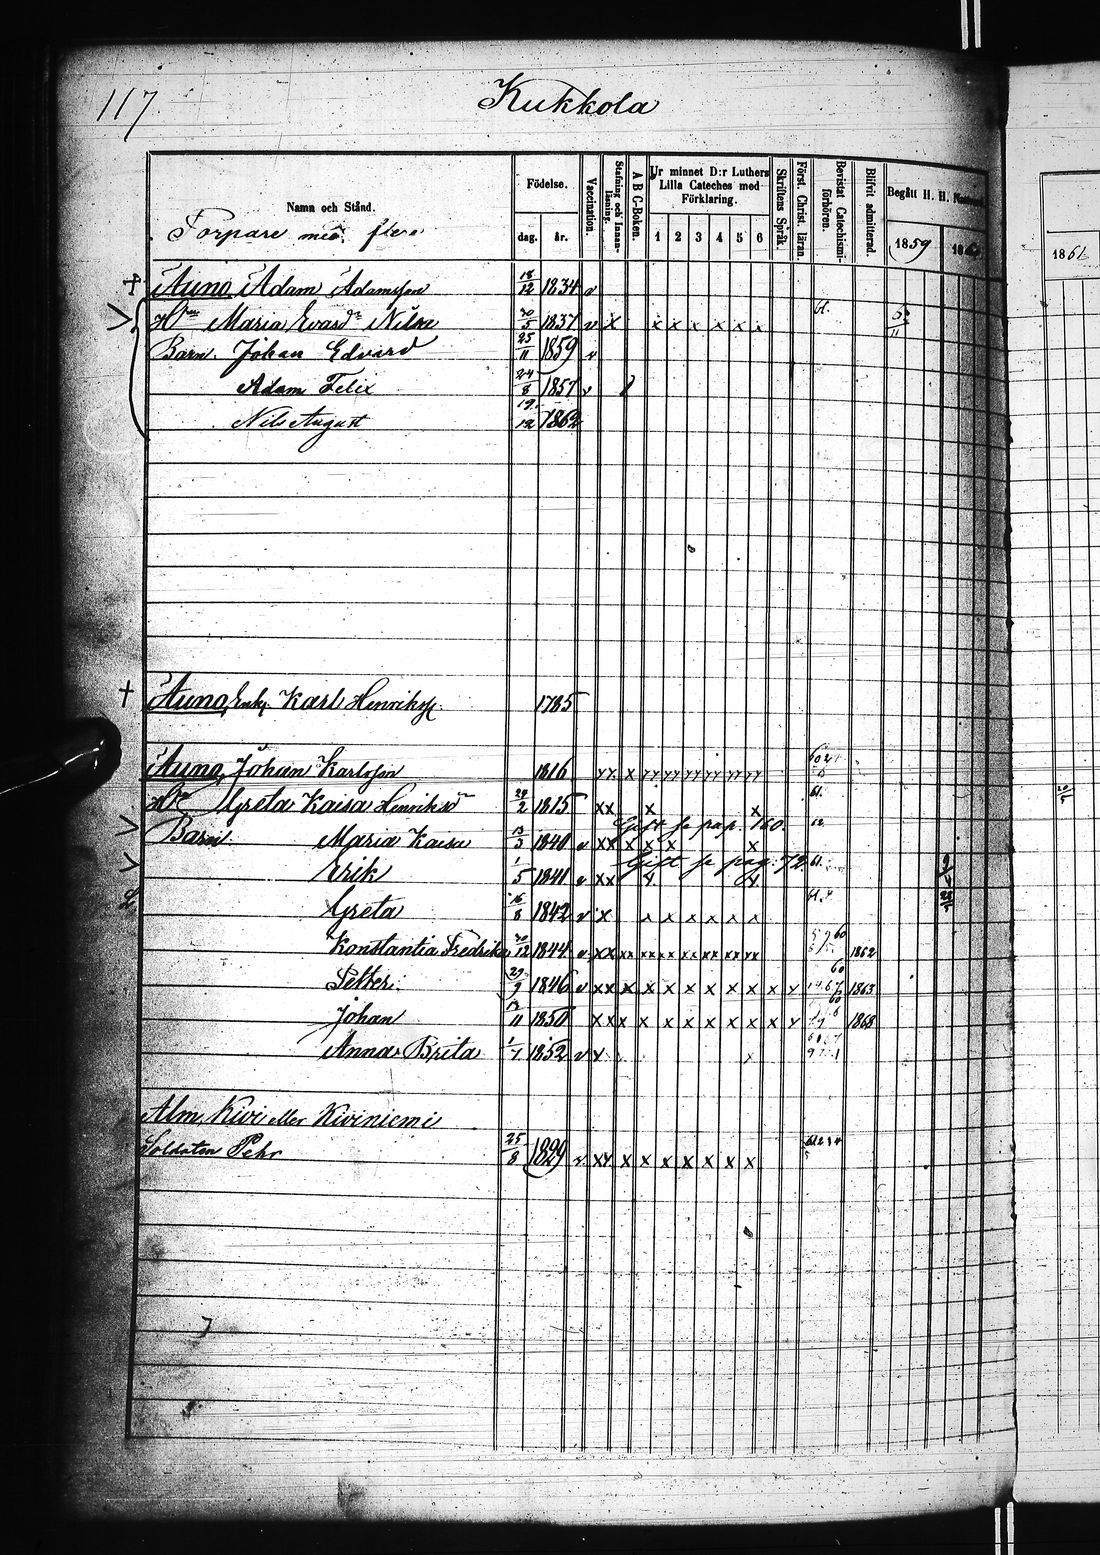 117
Kukkola
Namn och Stånd.
Torpare med flera
Födelse.
dag. år.
Vaccination.
Stafning och Innanläsning.
A B C-Boken.
Ur minnet D:r Luthers Lilla Cateches med Förklaring.
1 2 3 4 5 6
Skriftens Språk
Först. Christ. läran.
Bevistat Catechismiförhören.
Blifvit admitterad.
Begått H. H. Nattvard.
1859
1861
+ Auno, Adam Adamsson 18/12 1834 v
H:un Maria Evasd:r Nilsn 30/5 1837 v x x x x x x x 61.
Barn. Johan Edvard 25/11 1859 v
Adam Felix 24/8 1857 v
Nils August 19/12 1862
† Auno, Enkl. Karl Henrikss. 1785
Auno, Johan Karlsson 1816
H:un Greta Kaisa Henriksd:r 29/2 1815 xx x x 61.
Gift se pag. 160.
Barn: Maria Kaisa 13/3 1840 v xx x x x x 62
Gift se pag. 72.
Erik 1/5 1841 v xx x x 61.
Greta 16/8 1842 v x x x x x x x
Konstantia Fredrika 30/12 1844 v xx xx xx xx xx xx xx xx 1862
Petteri 29/9 1846 v xx x x x x x x x x x 1863
Johan 12/11 1850 xx x x x x x x x x x 1868
Anna Brita 1/1 1852 v x
Alm, Kivi eller Kiviniemi
Soldaten Pehr 25/8 1829 v xx x x x x x x x